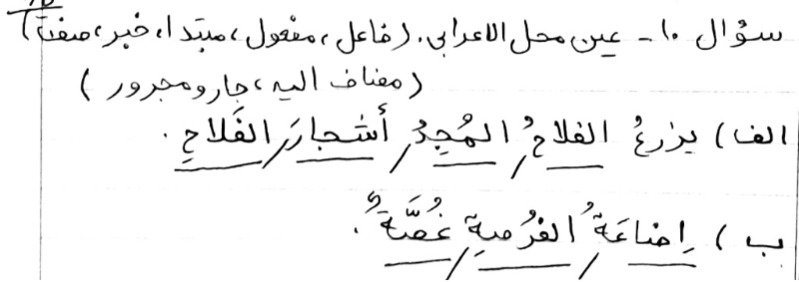 سؤال ۱۰ - عین محل الاعرابی. (فاعل، مفعول، مبتدا، خبر، صفت)
(مضاف الیه، جار و مجرور)
الف) یزرعُ الفلاحُ المُجِدُّ أشجارَ الفَلاحِ.
ب) إضاعَةُ الفُرصةِ غُصَّةٌ.